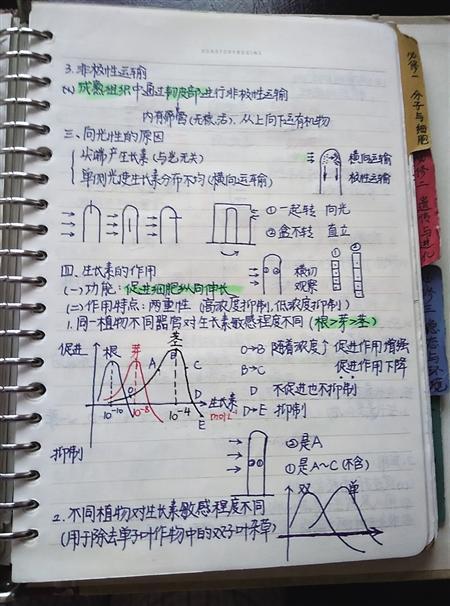 3.非极性运输
(2) 成熟组织中通过韧皮部进行非极性运输
内有筛管(无核,活),从上向下运有机物
三、向光性的原因
尖端产生长素(与光无关)
单侧光使生长素分布不均(横向运输)
横向运输
极性运输
①一起转 向光
②盒不转 直立
四、生长素的作用
(一)功能:促进细胞纵向伸长
横切
观察
(二)作用特点:两重性(高浓度抑制,低浓度抑制)
1.同一植物不同器官对生长素敏感程度不同(根>芽>茎)
促进
根
芽
茎
B
A
C
O
D
E
10-10
10-8
10-4
生长素
mol·L-1
抑制
O→B 随着浓度↑促进作用增强
B→C 促进作用下降
D 不促进也不抑制
D→E 抑制
②是A
①是A~C(不含)
2.不同植物对生长素敏感程度不同
(用于除去单子叶作物中的双子叶杂草)
双
单
必修一 分子与细胞
必修二 遗传与进化